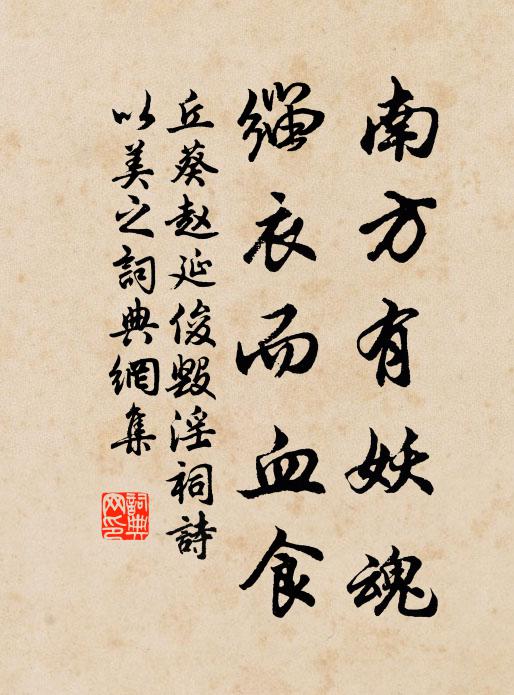 南方有妖魂
緇衣而血食
丘葵赵延俊毁淫祠詩
以美之詞典網集
詞典
网印